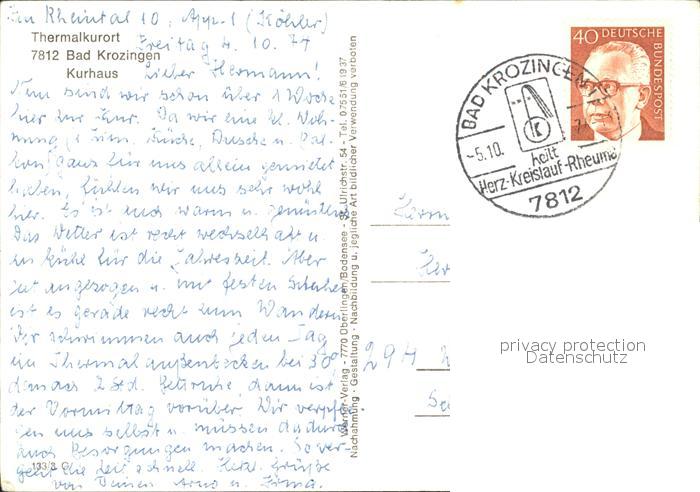 Im Rheintal 10, App. 1 (Köhler)
Thermalkurort
Freitag 4. 10. 74
7812 Bad Krozingen
Kurhaus
Lieber Hermann!
Nun sind wir schon über 1 Woche
hier zur Kur. Da wir eine kl. Woh-
nung, 1 Zim., Küche, Dusche u. Bal-
kon ganz für uns allein gemietet
haben, fühlen wir uns sehr wohl
hier. Es ist auch warm u. gemütlich.
Das Wetter ist recht wechselhaft u.
zu kühl für die Jahreszeit. Aber
gut angezogen u. mit festen Schuhen
ist es gerade recht zum Wandern.
Wir schwimmen auch jeden Tag
im Thermalaußenbecken bei 30°
danach 2 Std. Bettruhe, dann ist
der Vormittag vorüber. Wir verpfle-
gen uns selbst u. müssen dadurch
auch Besorgungen machen. So ver-
geht die Zeit schnell. Herzl. Grüße
von Deinen Arno u. Irma.
133/3 G
Werner-Verlag - 7770 Überlingen/Bodensee - St. Ulrichstr. 54 - Tel. 07551/61937
Nachahmung - Gestaltung - Nachbildung u. jegliche Art bildlicher Verwendung verboten
40 DEUTSCHE
BUNDESPOST
BAD KROZINGEN
K
-5.10.
heilt
Herz-Kreislauf-Rheuma
7812
294
privacy protection
Datenschutz